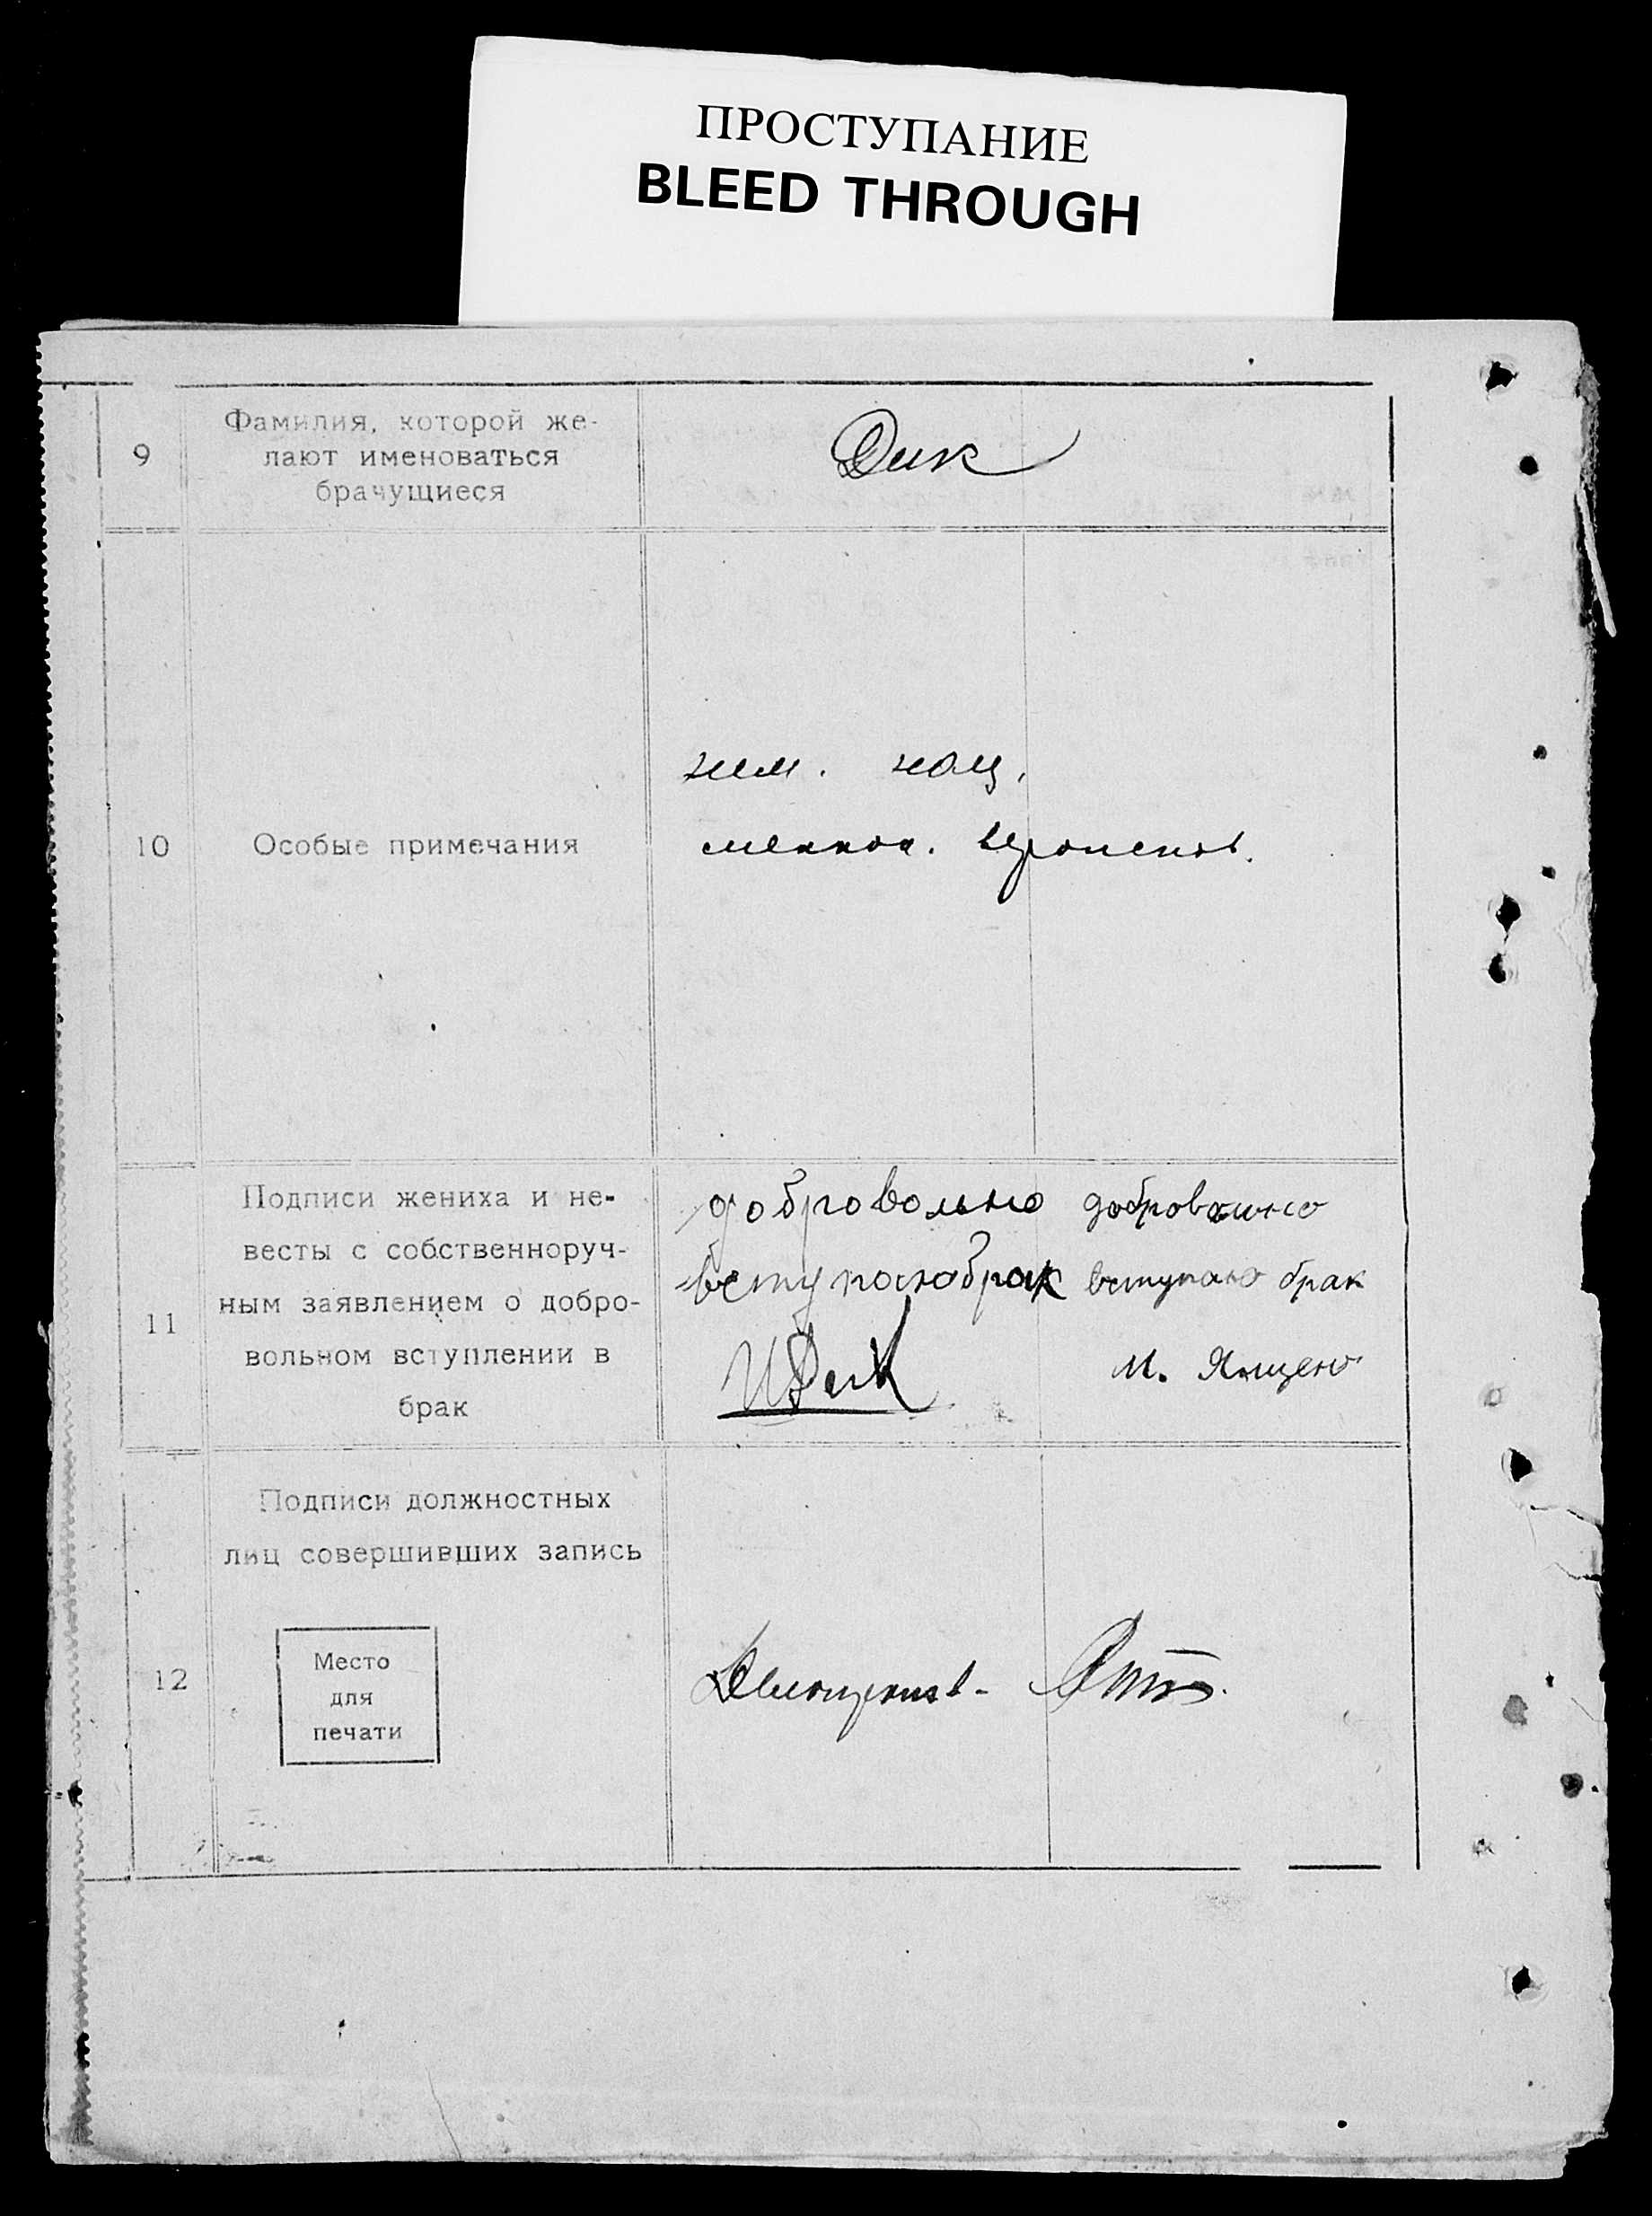 ПРОСТУПАНИЕ
BLEED THROUGH
9
Фамилия, которой же-
лают именоваться
брачущиеся
Дик
10
Особые примечания
нем. нац.
меннон. вероисков.
11
Подписи жениха и не-
весты с собственноруч-
ным заявлением о добро-
вольном вступлении в
брак
добровольно
вступаю брак
ИДик
добровольно
вступаю брак
М.
12
Подписи должностных
лиц совершивших запись
Место
для
печати